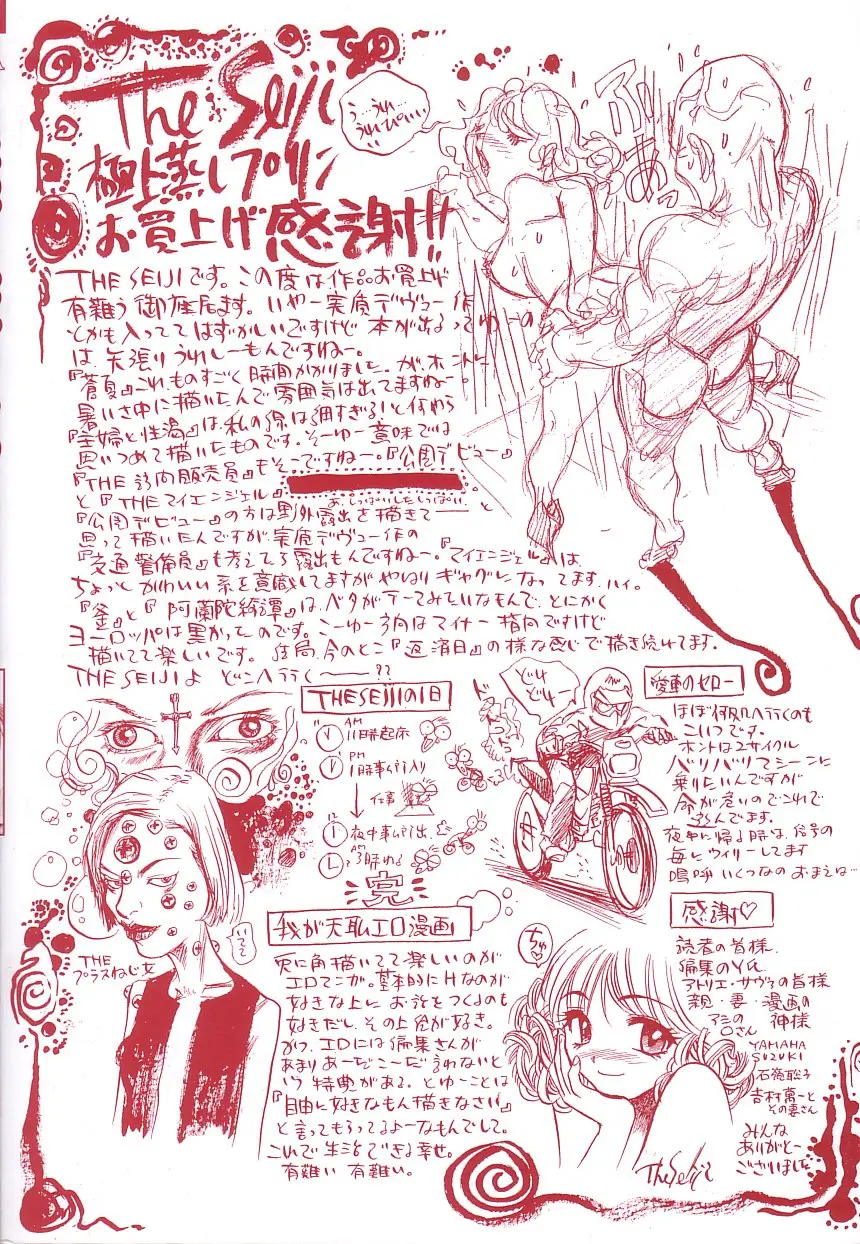 The Seiji
極上蒸しプリン
お買上げ感謝!!
う…うれ…
うれぴい…
ふ
あっ
THE SEIJIです。この度は作品お買上げ
有難う御座居ます。いやー実底デヴュー作
とかも入っててはずかしいですけど本が出るってゆーの
は矢張りうれしーもんですねー。
『蒼夏』これものすごく時間かかりました。が、ホントに
暑いさ中に描いたんで雰囲気は出てますねー。
『主婦と性湯』は、私の線は細すぎる!と
思いつめて描いたものです。そーゆー意味では
『THE 訪問販売員』もそーですねー。『公園デビュー』
と『THEマイエンジェル』
『公園デビュー』の方は野外露出を描きてーーと
思って描いたんですが、実底デヴュー作の
『交通警備員』も考えてろ露出もんですねー。『マイエンジェル』は、
ちょっとかわいい系を意識してますがやはりギャグになってます、ハイ。
『釜』と『阿蘭陀綺譚』は、ベタがテーマみたいなもんで、とにかく
ヨーロッパは黒かったのです。こーゆー方向はマイナー指向ですけど
描いてて楽しいです。結局、今のとこ『返済日』の様な感じで描き続けてます。
THE SEIJIよ どこへ行く——??
THE SEIJIの1日
AM
11時起床
PM
11時事ム所入り
仕事
夜中事ムを出、
AM
3時ねる
完
愛車のセロー
どれどれー
ほぼ何処へ行くのも
こいつです。
ホントは2サイクル
バリバリでシーンに
乗りたいんですが
命が危いのでこれで
遊んでます。
夜中に帰る時は、信号の
毎にウィリーしてます
嗚呼いくつなのおまえは…
THE
プラスねじ女
いてて
我が天恥エロ漫画
兎に角描いてて楽しいのが
エロマンガ。基本的にHなのが
好きな上に、お話をつくるのも
好きだし、その上絵が好き。
かつ、エロには編集さんが
あまりあーだこーだ言わないと
いう特典がある。とゆーことは
『自由に好きなもん描きなさい』
と言ってもらってるよーなもんでして。
これで生活できる幸せ。
有難い 有難い。
感謝♡
ちゅ♡
読者の皆様
編集のY氏
アトリエ・サヴァの皆様
親・妻・漫画の神様
アシのロさん
YAMAHA
SUZUKI
石嶺聡子
吉村萬一と
その妻さん
みんな
ありがとー
ございました
The Seiji